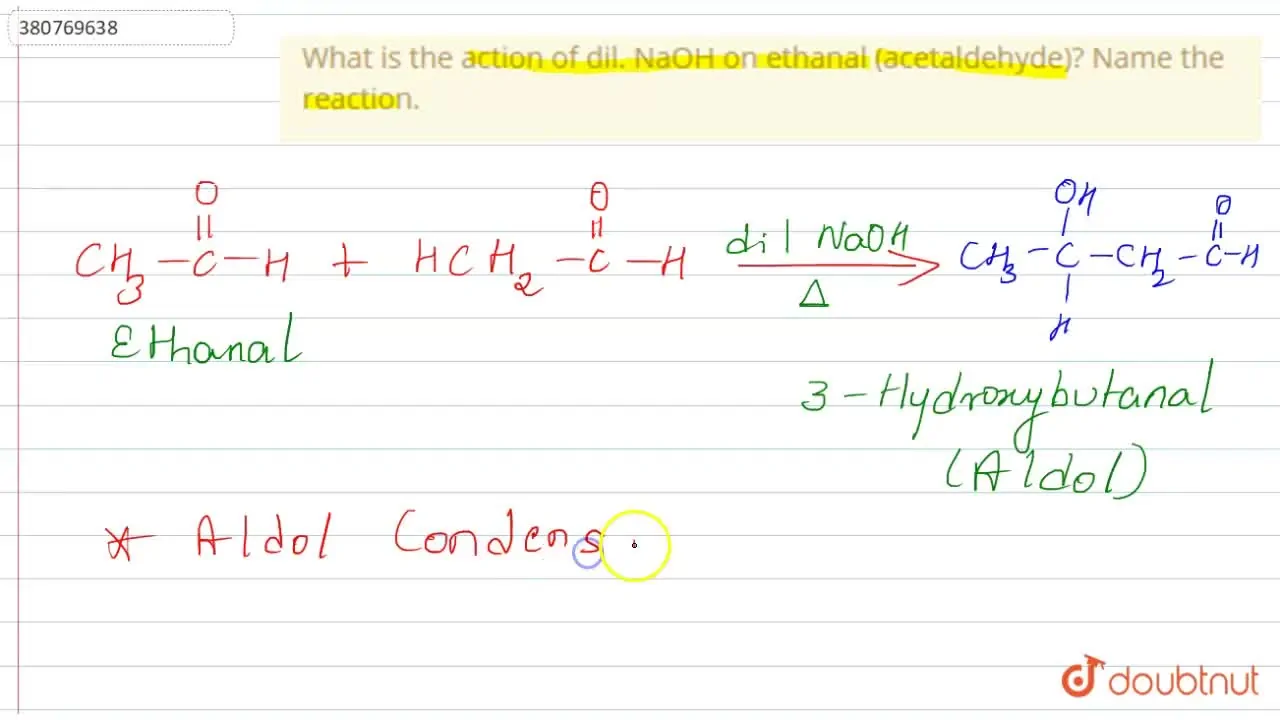 380769638
What is the action of dil. NaOH on ethanal (acetaldehyde)? Name the
reaction.
O O OH O
|| || | ||
CH₃ – C – H + HCH₂ – C – H dil NaOH CH₃ – C – CH₂ – C – H
Δ |
H
Ethanal
3 – Hydroxybutanal
(Aldol)
* Aldol Condens
doubtnut